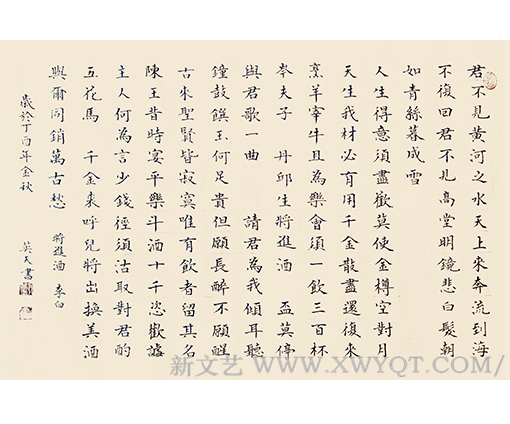 君不見黄河之水天上來奔流到海
不復回君不見高堂明鏡悲白髮朝
如青絲暮成雪
人生得意須盡歡莫使金樽空對月
天生我材必有用千金散盡還復來
烹羊宰牛且為樂會須一飲三百杯
岑夫子 丹邱生將進酒 盃莫停
與君歌一曲 請君為我傾耳聽
鐘鼓饌玉何足貴但願長醉不願醒
古來聖賢皆寂寞唯有飲者留其名
陳王昔時宴平樂斗酒十千恣歡謔
主人何為言少錢徑須沽取對君酌
五花馬 千金裘呼兒將出換美酒
與爾同銷萬古愁 將進酒 李白
歲於丁酉年金秋 英天書
新文艺 WWW.XWYQT.COM/